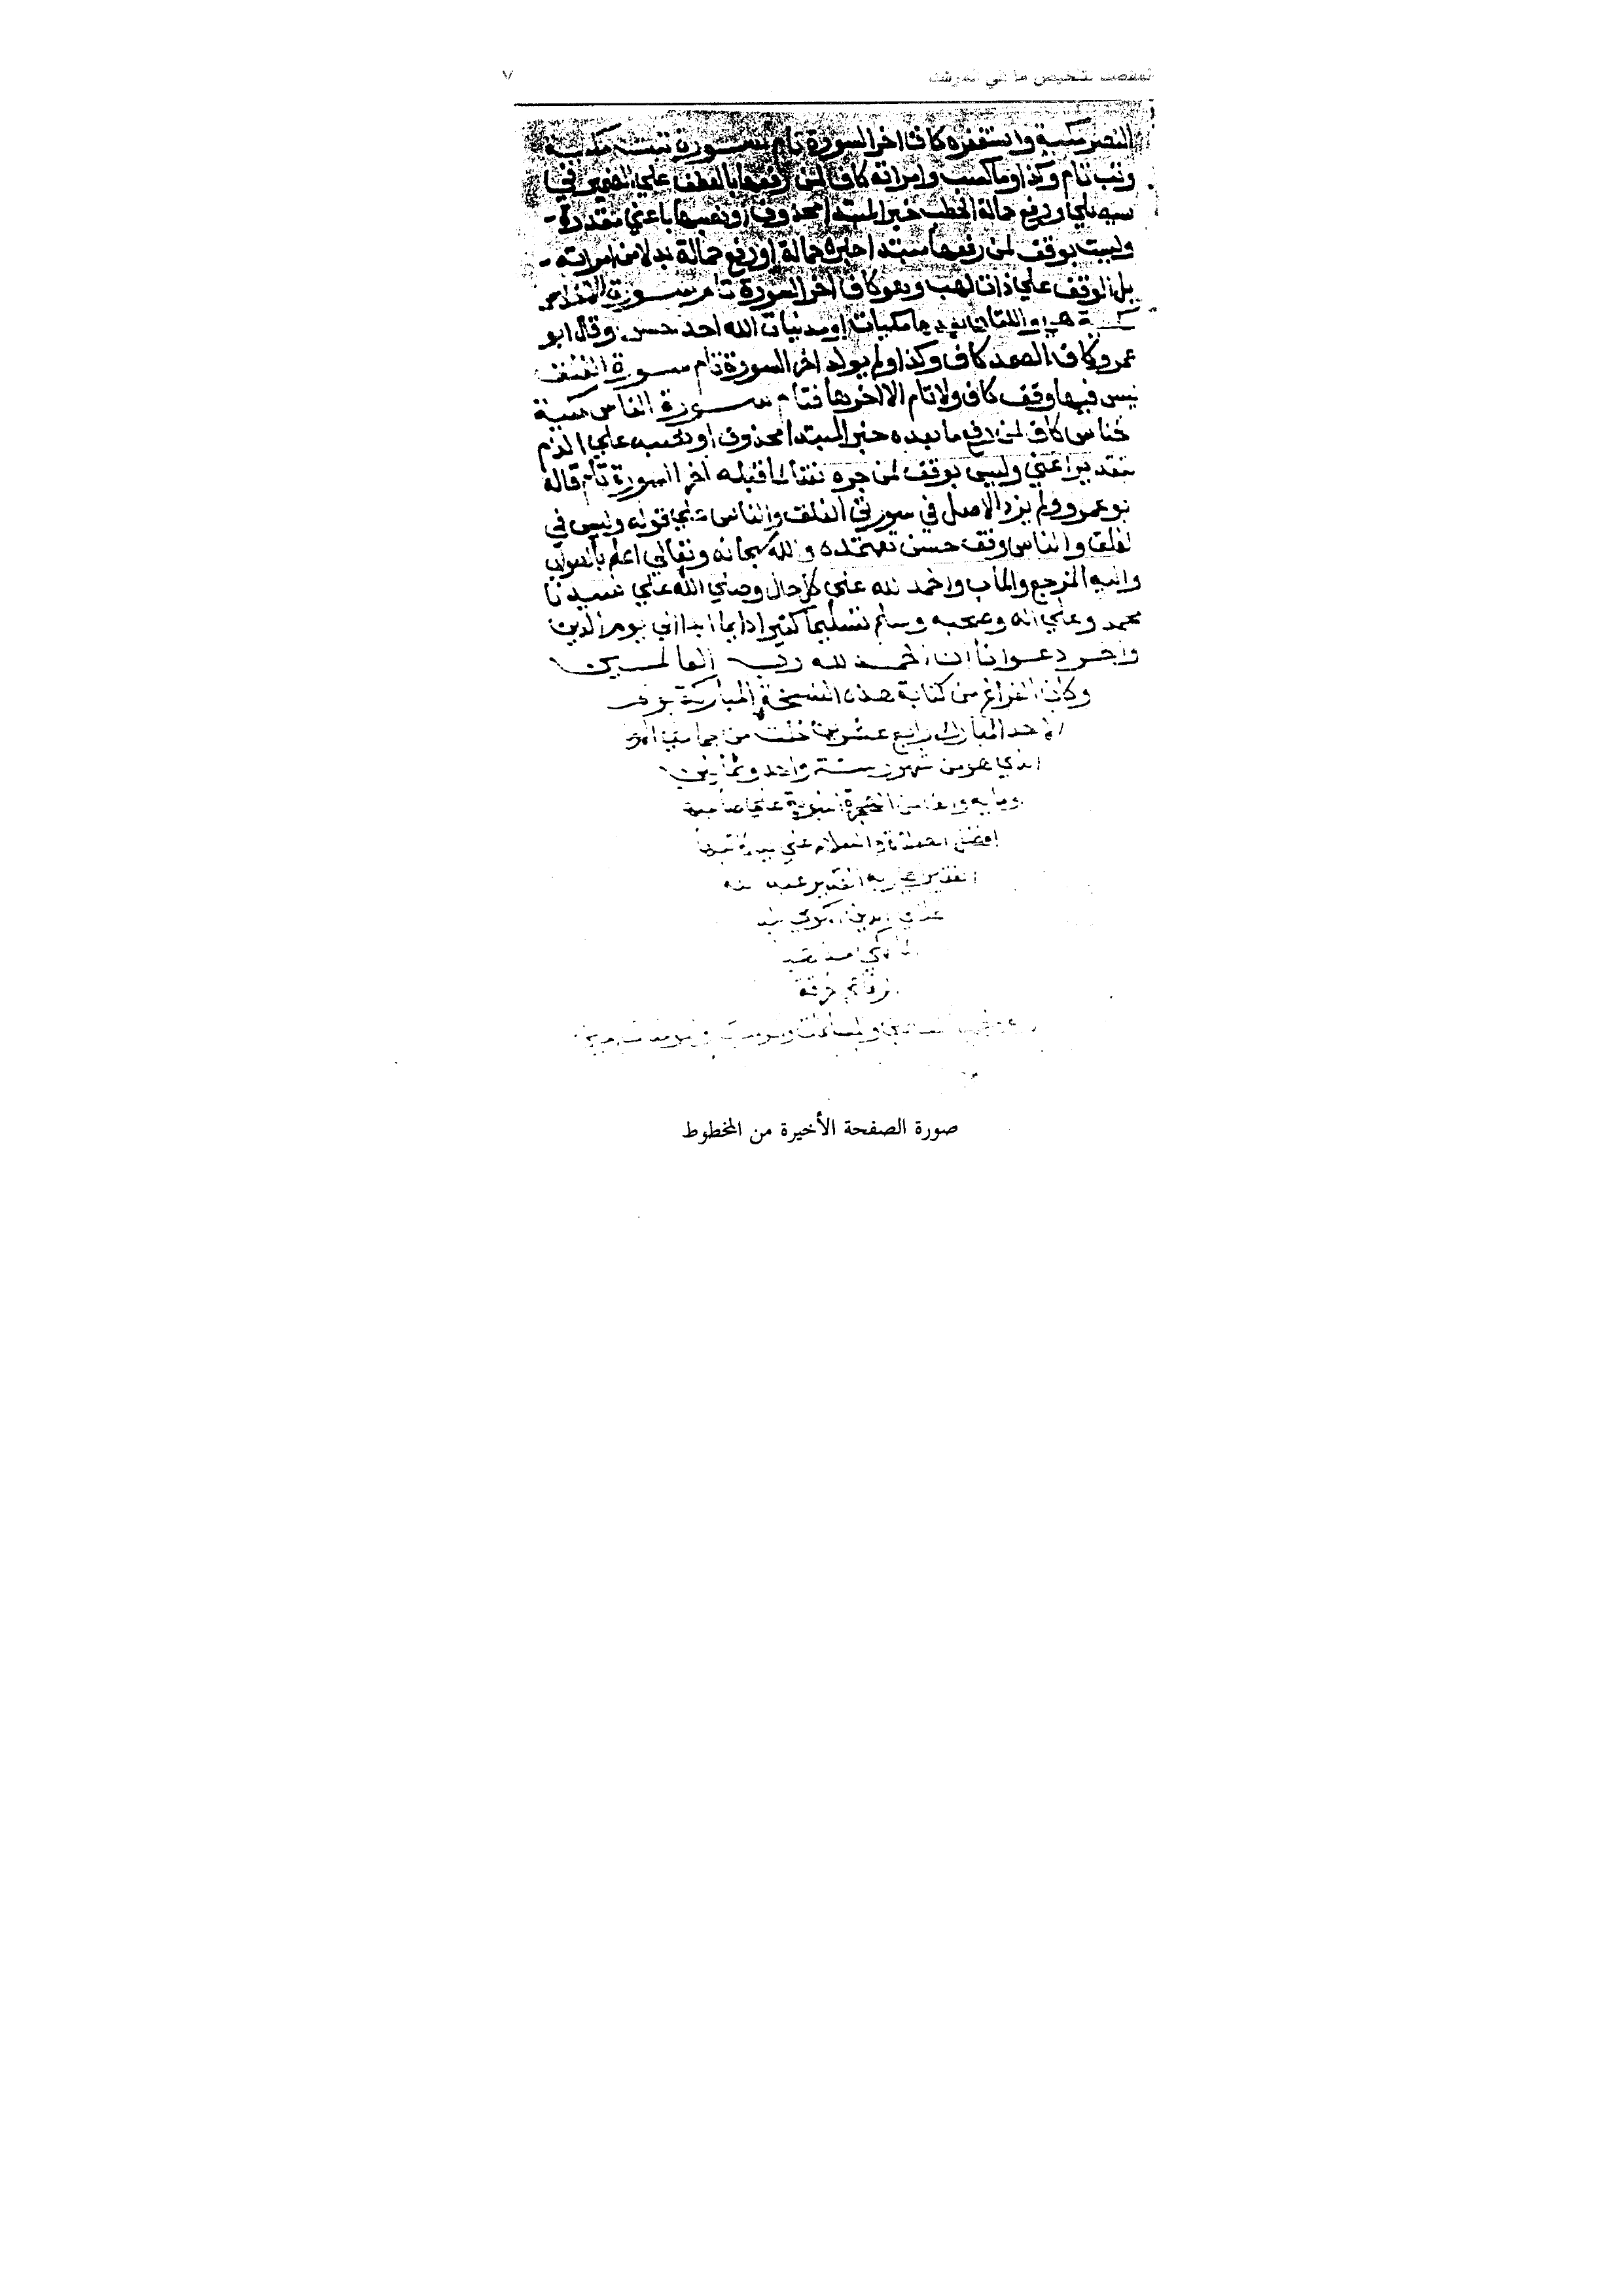 المقصد لتلخيص ما في المرشد ٧
النصر مكية واستغفره كاف اخر السورة تام سورة تبت مكية
وتب تام وكذا وما كسب وامراته كاف لمن رفعها بالعطف علي الضمير في
سيصلي ورفع حمالة الحطب خبر المبتدا محذوف او نصبها باعني مقدرة
وليست بوقف لمن رفعها مبتدا خبره حمالة او رفع حمالة بدلا من امراته
بل الوقف علي ذات لهب وهو كاف اخر السورة تام سورة الاخلاص
هي واللتان بعدها مكيات او مدنيات الله احد حسن وقال ابو
عمرو كاف الصمد كاف وكذا ولم يولد اخر السورة تام سورة الفلق
ليس فيها وقف كاف ولا تام الا اخرها فتام سورة الناس مكية
خناس كاف لمن رفع ما بعده خبر المبتدا محذوف او نصبه علي الذم
بتقدير اعني وليس بوقف لمن جره نعتا لما قبله اخر السورة تام قاله
بو عمرو ولم يزد الاصل في سورتي الفلق والناس علي قوله وليس في
لفلق والناس وقف حسن تعتمده والله سبحانه وتعالي اعلم بالصواب
واليه المرجع والماب والحمد لله علي كل حال وصلي الله علي سيدنا
محمد وعلي اله وصحبه وسلم تسليما كثيرا دايما ابدا الي يوم الدين
واخر دعوانا ان الحمد لله رب العالمين
وكان الفراغ من كتابة هذه النسخة المباركة يوم
الاحد المبارك رابع عشرين خلت من جماد
الذي هو من شهور سنة واحد وثمانين
وماية والف من الهجرة النبوية علي صاحبها
افضل الصلاة والسلام علي يد
الفقير
المالكي
صورة الصفحة الأخيرة من المخطوط